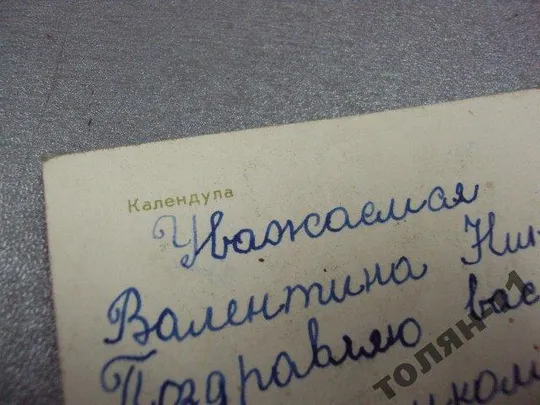 Календула
Уважаемая
Валентина
Поздравляю вас
толян-1